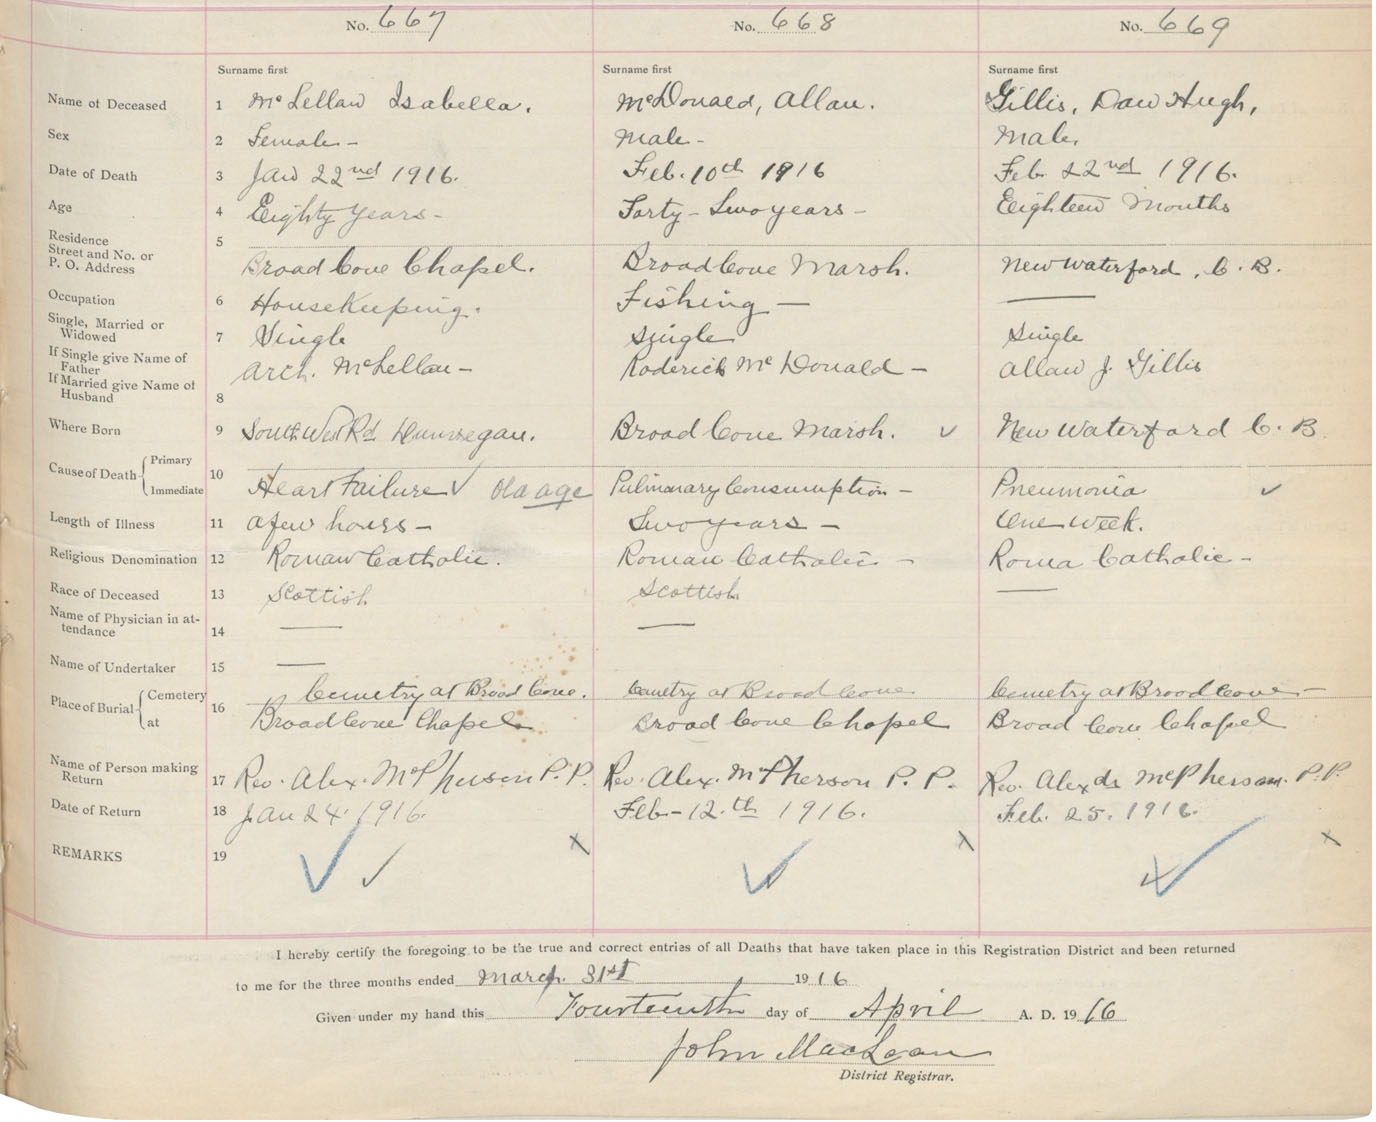 No. 667 No. 668 No. 669
Surname first Surname first Surname first
Name of Deceased 1 McLellan Isabella. McDonald, Allan. Gillis, Dan Hugh,
Sex 2 Female - Male - Male,
Date of Death 3 Jan 22nd 1916. Feb. 10th 1916 Feb 22nd 1916.
Age 4 Eighty Years - Forty - Two years - Eighteen Months
Residence
Street and No. or
P. O. Address 5 Broad Cove Chapel. Broad Cove Marsh. New Waterford, C. B.
Occupation 6 Housekeeping. Fishing —
Single, Married or
Widowed 7 Single Single Single
If Single give Name of
Father Arch. McLellan - Roderick McDonald - Allan J. Gillis
If Married give Name of
Husband 8
Where Born 9 South West Rd Dunvegan. Broad Cove Marsh. New Waterford C. B.
Cause of Death { Primary 10
Immediate Heart Failure Old age Pulmanary Consumption - Pneumonia
Length of Illness 11 a few hours - Two years - One Week.
Religious Denomination 12 Roman Catholic. Roman Catholic - Roma Catholic -
Race of Deceased 13 Scottish Scottish —
Name of Physician in at-
tendance 14 — —
Name of Undertaker 15 —
Place of Burial { Cemetery Cemetry at Broad Cove. Cemetry at Broad Cove Cemetry at Broad Cove -
at 16 Broad Cove Chapel Broad Cove Chapel Broad Cove Chapel
Name of Person making
Return 17 Rev. Alex. McPherson P. P. Rev. Alex. McPherson P. P. Rev. Alexdr McPherson. P. P.
Date of Return 18 Jan 24. 1916. Feb - 12.th 1916. Feb. 25. 1916.
REMARKS 19 x x x
I hereby certify the foregoing to be the true and correct entries of all Deaths that have taken place in this Registration District and been returned
to me for the three months ended March 31st 1916
Given under my hand this Fourteenth day of April A. D. 1916
John MacLean
District Registrar.